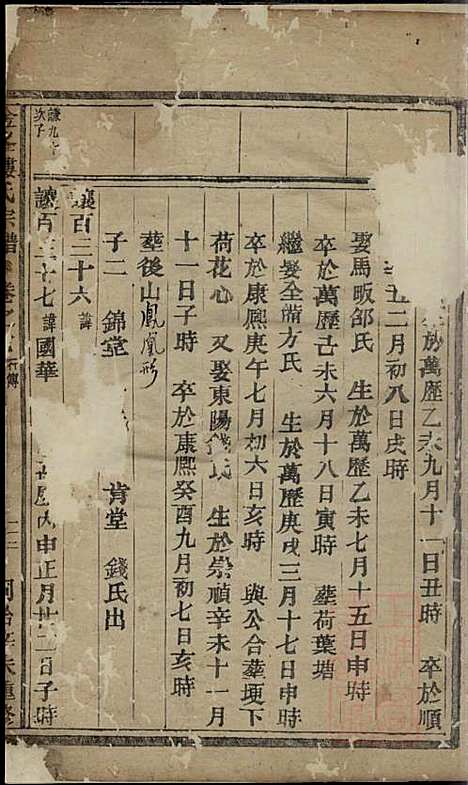 於萬歷乙未九月十一日丑時 卒於順
二月初八日戌時
娶馬畈邵氏 生於萬歷乙未七月十五日申時
卒於萬歷己未六月十八日寅時 塟荷葉塘
繼娶全蒲方氏 生於萬歷庚戌三月十七日申時
卒於康熙庚午七月初六日亥時 與公合塟埂下
荷花心 又娶東陽錢氏 生於崇順辛未十一月
十一日子時 卒於康熙癸酉九月初七日亥時
塟後山鳳凰形
子二 錦堂 肯堂 錢氏出
百三十六諱
讓百三十七諱國華 申正月廿二日子時
謙九
次子
樓氏宗譜 卷 行傳 同治辛未重修